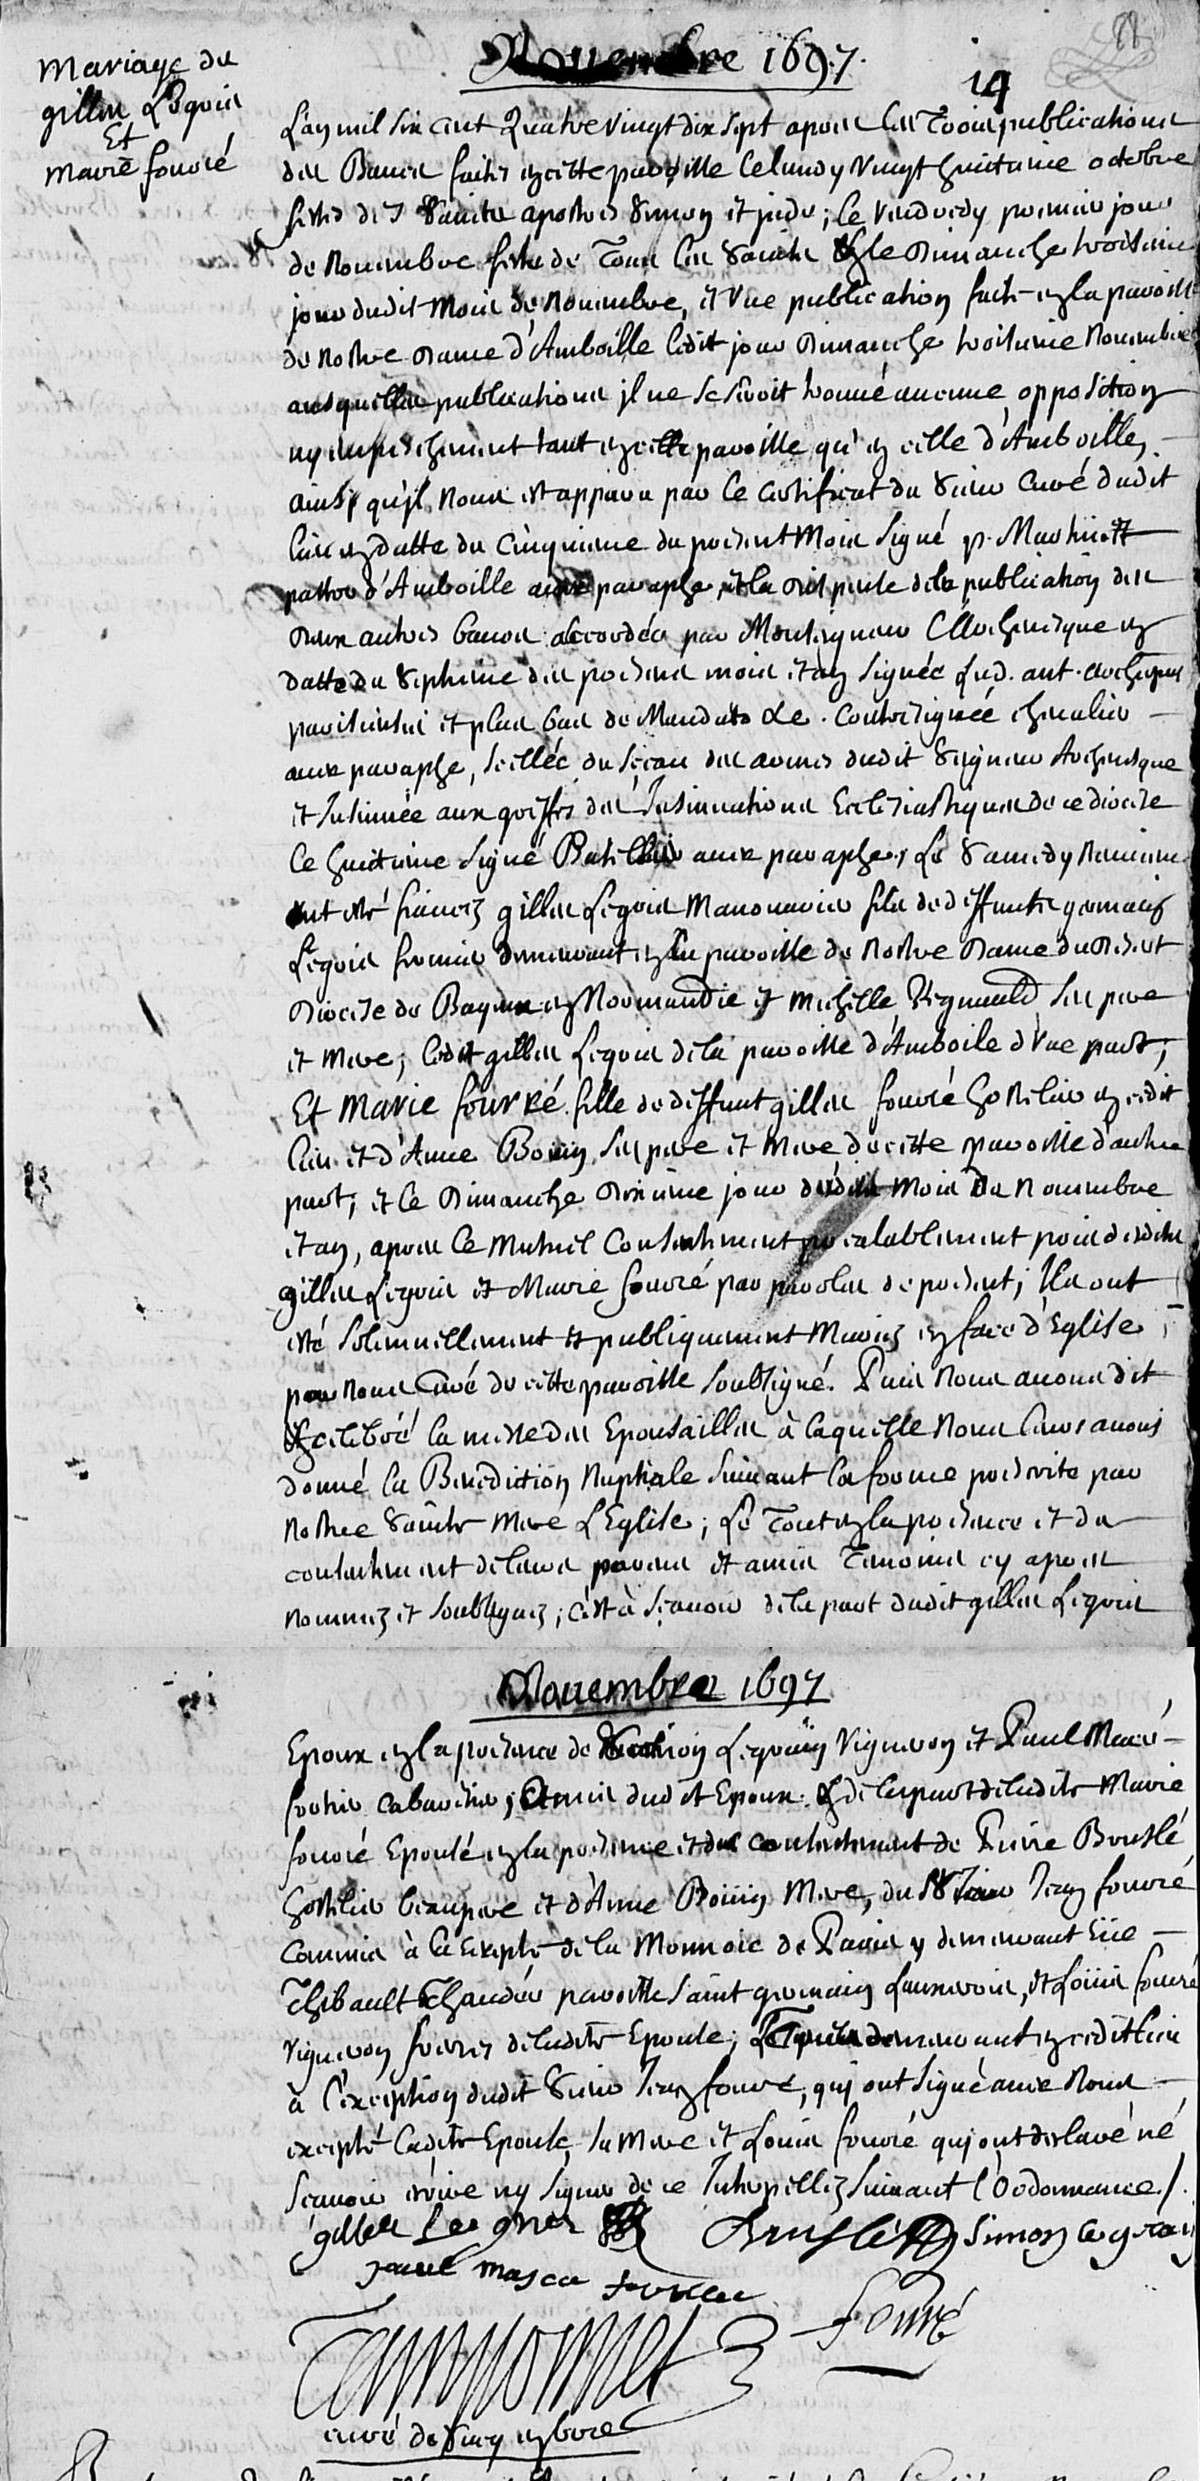 Nouembre 1697.
14
Mariage de
gilles Legris
Et
Marie fourré
L'an mil six cent Quatre vingt dix sept apres les Trois publications
des Bancs faites en cette paroisse le lundy vingt huitieme octobre
feste des Saints apostres Simon et jude; le vendredy premier jour
de Nouembre feste de Tous les Saints & le Dimanche troisieme
jour dudit Mois de Nouembre, et Vne publication faite en la paroisse
de Nostre Dame d'Amboille ledit jour Dimanche troisieme Nouembre
ausquelles publications il ne se seroit trouué aucune opposition
ny empeschement tant en cette paroisse qu'en celle d'Amboille,
ainsy qu'il Nous est apparu par le Certificat du Sieur Curé dudit
lieu en datte du Cinquieme du present Mois signé p. Martinet
pasteur d'Amboille auec paraphe, et la dispense de la publication des
deux autres bancs accordée par Monseigneur L'Archeuesque en
datte du Septieme des presens mois et an signée Lud. ant. archiepus
parisiensis et plus bas de Mandato &c. Contresignée cheualier
auec paraphe, scellée du sceau des armes dudit Seigneur Archeuesque
et Insinuée aux greffes des Insinuations Ecclesiastiques de ce diocese
le huitieme signé auec paraphe, Le Samedy Neuuieme
ont esté fiancez gilles Legris Manouurier fils de deffunts germain
Legris fermier demeurant en la paroisse de Nostre Dame du Desert
Diocese de Bayeux en Normandie et Michelle Regnauld ses pere
et Mere; ledit gilles Legris de la paroisse d'Amboile d'Vne part;
Et Marie fourré fille de deffunt gilles fourré hostelier en cedit
lieu et d'Anne Boüin ses pere et Mere de cette paroisse d'autre
part; et le Dimanche dixieme jour dudit Mois de Nouembre
et an, apres le mutuel Consentement prealablement pris desdits
gilles Legris et Marie fourré par paroles de present; Ils ont
esté solemnellement et publiquement Mariez en face d'Eglise
par Nous Curé de cette paroisse soubsigné. Puis Nous auons dit
& celebré la messe des Epousailles à laquelle Nous leurs auons
donné la Benediction Nuptiale suiuant la forme prescrite par
Nostre Sainte Mere L'Eglise; Le Tout en la presence et du
consentement de leurs parens et amis Temoins cy apres
nommez et soubsignez; c'est à sçauoir de la part dudit gilles Legris
Nouembre 1697
Epoux en la presence de Legrain Vigneron et Paul Macé
fortier cabaretier; Amis dudit Epoux. & de la part de ladite Marie
fourré Epouse en la presence et du consentement de Pierre Bruslé
hostelier beaupere et d'Anne Boüin Mere, du Sieur Jean fourré
Commis à la recepte de la Monnoie de Paris y demeurant rüe
Thibault Thaudée paroisse saint germain Lauxerrois, et Loüis fourré
vigneron freres de ladite Epouse; demeurants en cedit lieu
à l'exception dudit Sieur Jean fourré, qui ont signé auec Nous
excepté ladite Epouse, sa Mere et Loüis fourré qui ont declaré né
sçauoir écrire ny signer de ce Interpellez suiuant l'Ordonnance./.
gilles Legris Bruslé Simon Legrain
paul masce fortier
fourré
curé de Sucy en brie